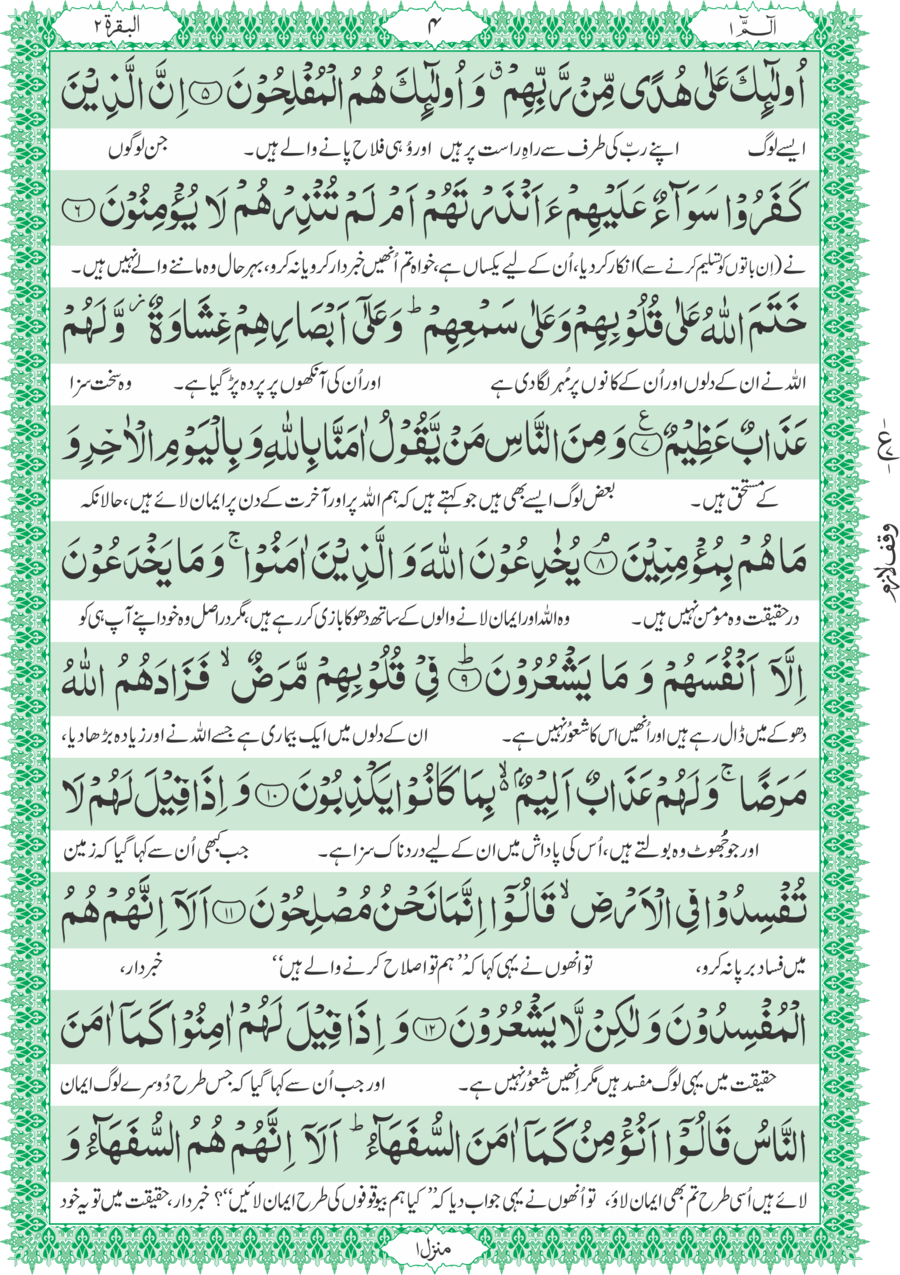 الٓمّٓ ۱
۴
البقرة ۲
اُولٰٓئِكَ عَلٰی هُدًی مِّنْ رَّبِّهِمْ ۗ وَ اُولٰٓئِكَ هُمُ الْمُفْلِحُوْنَ ۝۵ اِنَّ الَّذِیْنَ
ایسے لوگ اپنے ربّ کی طرف سے راہِ راست پر ہیں اور وُہی فلاح پانے والے ہیں۔ جن لوگوں
كَفَرُوْا سَوَآءٌ عَلَیْهِمْ ءَاَنْذَرْتَهُمْ اَمْ لَمْ تُنْذِرْهُمْ لَا یُؤْمِنُوْنَ ۝۶
نے (اِن باتوں کو تسلیم کرنے سے) انکار کر دیا، اُن کے لیے یکساں ہے، خواہ تم اُنھیں خبردار کرو یا نہ کرو، بہرحال وہ ماننے والے نہیں ہیں۔
خَتَمَ اللّٰهُ عَلٰی قُلُوْبِهِمْ وَ عَلٰی سَمْعِهِمْ ؕ وَ عَلٰۤی اَبْصَارِهِمْ غِشَاوَةٌ ؗ وَّ لَهُمْ
اللہ نے ان کے دلوں اور اُن کے کانوں پر مُہر لگا دی ہے اور اُن کی آنکھوں پر پردہ پڑ گیا ہے۔ وہ سخت سزا
عَذَابٌ عَظِیْمٌ ۝۷ ع وَ مِنَ النَّاسِ مَنْ یَّقُوْلُ اٰمَنَّا بِاللّٰهِ وَ بِالْیَوْمِ الْاٰخِرِ وَ
کے مستحق ہیں۔ بعض لوگ ایسے بھی ہیں جو کہتے ہیں کہ ہم اللہ پر اور آخرت کے دن پر ایمان لائے ہیں، حالانکہ
مَا هُمْ بِمُؤْمِنِیْنَ ۝۸ۘ یُخٰدِعُوْنَ اللّٰهَ وَ الَّذِیْنَ اٰمَنُوْا ۚ وَ مَا یَخْدَعُوْنَ
وقف لازم
در حقیقت وہ مومن نہیں ہیں۔ وہ اللہ اور ایمان لانے والوں کے ساتھ دھوکا بازی کر رہے ہیں، مگر دراصل وہ خود اپنے آپ ہی کو
اِلَّاۤ اَنْفُسَهُمْ وَ مَا یَشْعُرُوْنَ ۝۹ؕ فِیْ قُلُوْبِهِمْ مَّرَضٌ ۙ فَزَادَهُمُ اللّٰهُ
دھوکے میں ڈال رہے ہیں اور اُنھیں اس کا شعُور نہیں ہے۔ ان کے دلوں میں ایک بیماری ہے جسے اللہ نے اور زیادہ بڑھا دیا،
مَرَضًا ۚ وَ لَهُمْ عَذَابٌ اَلِیْمٌۢ ۙ۬ بِمَا كَانُوْا یَكْذِبُوْنَ ۝۱۰ وَ اِذَا قِیْلَ لَهُمْ لَا
اور جو جُھوٹ وہ بولتے ہیں، اُس کی پاداش میں ان کے لیے دردناک سزا ہے۔ جب کبھی اُن سے کہا گیا کہ زمین
تُفْسِدُوْا فِی الْاَرْضِ ۙ قَالُوْۤا اِنَّمَا نَحْنُ مُصْلِحُوْنَ ۝۱۱ اَلَاۤ اِنَّهُمْ هُمُ
میں فساد برپا نہ کرو، تو انھوں نے یہی کہا کہ ”ہم تو اصلاح کرنے والے ہیں“ خبردار،
الْمُفْسِدُوْنَ وَ لٰكِنْ لَّا یَشْعُرُوْنَ ۝۱۲ وَ اِذَا قِیْلَ لَهُمْ اٰمِنُوْا كَمَاۤ اٰمَنَ
حقیقت میں یہی لوگ مفسد ہیں مگر اِنھیں شعُور نہیں ہے۔ اور جب اُن سے کہا گیا کہ جس طرح دُوسرے لوگ ایمان
النَّاسُ قَالُوْۤا اَنُؤْمِنُ كَمَاۤ اٰمَنَ السُّفَهَآءُ ؕ اَلَاۤ اِنَّهُمْ هُمُ السُّفَهَآءُ وَ
لائے ہیں اُسی طرح تم بھی ایمان لاؤ، تو اُنھوں نے یہی جواب دیا کہ ”کیا ہم بیوقوفوں کی طرح ایمان لائیں“؟ خبردار، حقیقت میں تو یہ خود
منزل ۱